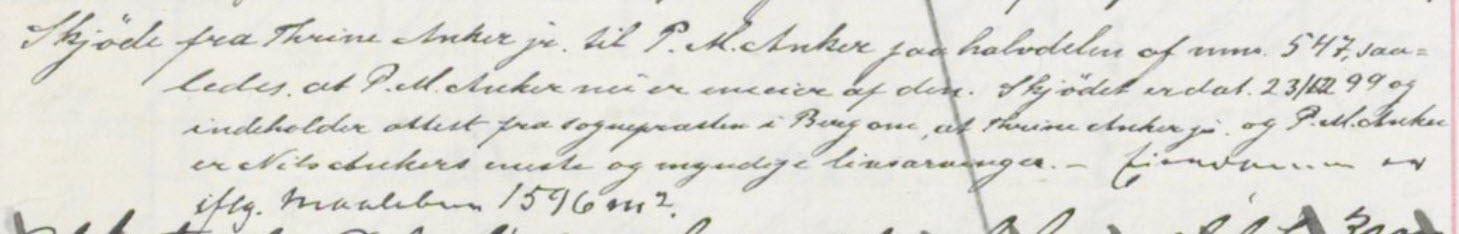 Skjöde fra Thrine Anker jr. til P. M. Anker paa halvdelen af mnr. 547, saa=
ledes, at P. M. Anker nu er eneeier af den. Skjödet er dat. 23/III 99 og
indeholder attest fra sognepræsten i Berg om, at Thrine Anker jr. og P. M. Anker
er Nils Ankers eneste og myndige livsarvinger. – Eiendommen er
iflg. Maalebrev 1596 m².